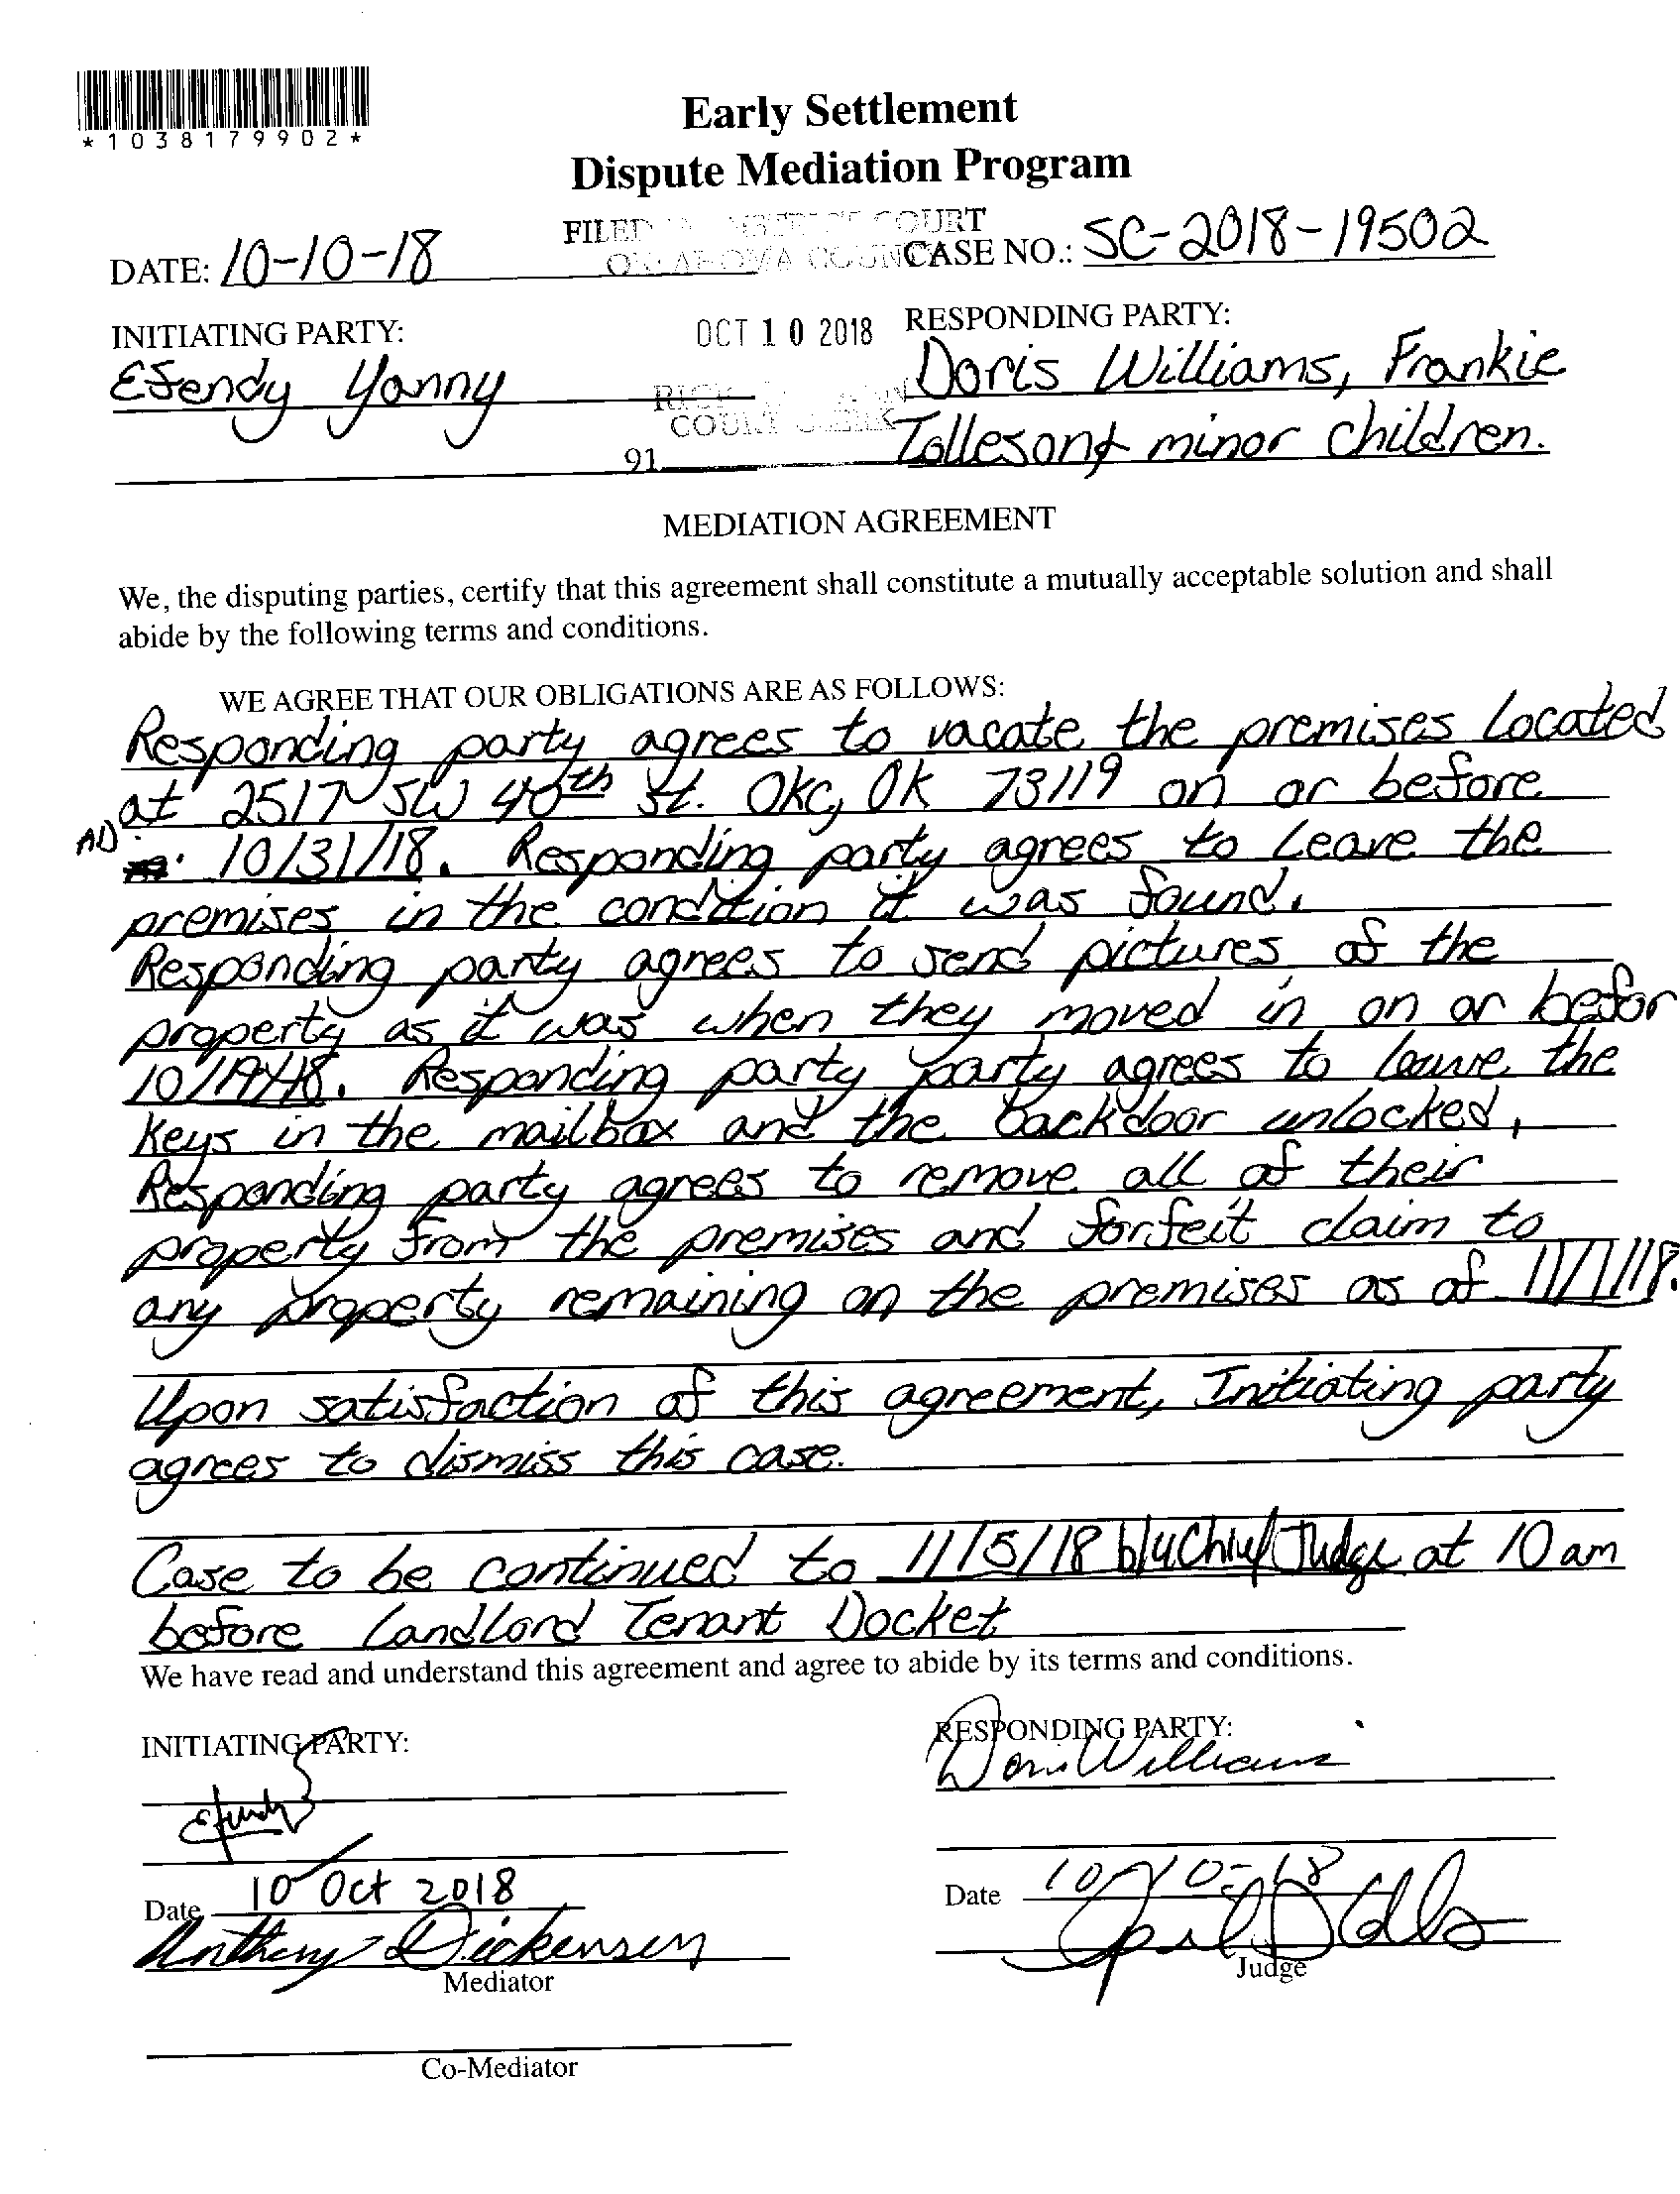 *1038179902*
Early Settlement
Dispute Mediation Program
FILED DISTRICT COURT
OKLAHOMA COUNTY
DATE: 10-10-18 CASE NO.: SC-2018-19502
INITIATING PARTY: OCT 10 2018 RESPONDING PARTY:
Efendy Yanny Doris Williams, Frankie
COURT CLERK
Tolleson & minor children.
91
MEDIATION AGREEMENT
We, the disputing parties, certify that this agreement shall constitute a mutually acceptable solution and shall
abide by the following terms and conditions.
WE AGREE THAT OUR OBLIGATIONS ARE AS FOLLOWS:
Responding party agrees to vacate the premises located
at 2517 SW 40th St. OKC, OK 73119 on or before
AD 10/31/18. Responding party agrees to leave the
premises in the condition it was found.
Responding party agrees to send pictures of the
property as it was when they moved in on or befor
10/19/18. Responding party party agrees to leave the
keys in the mailbox and the backdoor unlocked.
Responding party agrees to remove all of their
property from the premises and forfeit claim to
any property remaining on the premises as of 11/1/18.
Upon satisfaction of this agreement, Initiating party
agrees to dismiss this case.
Case to be continued to 11/5/18 b/4 Chief Judge at 10 am
before Landlord Tenant Docket
We have read and understand this agreement and agree to abide by its terms and conditions.
INITIATING PARTY: RESPONDING PARTY:
Doris Williams
Efendy
Date 10 Oct 2018 Date 10-10-18
Anthony Dickensen
Mediator Judge
Co-Mediator